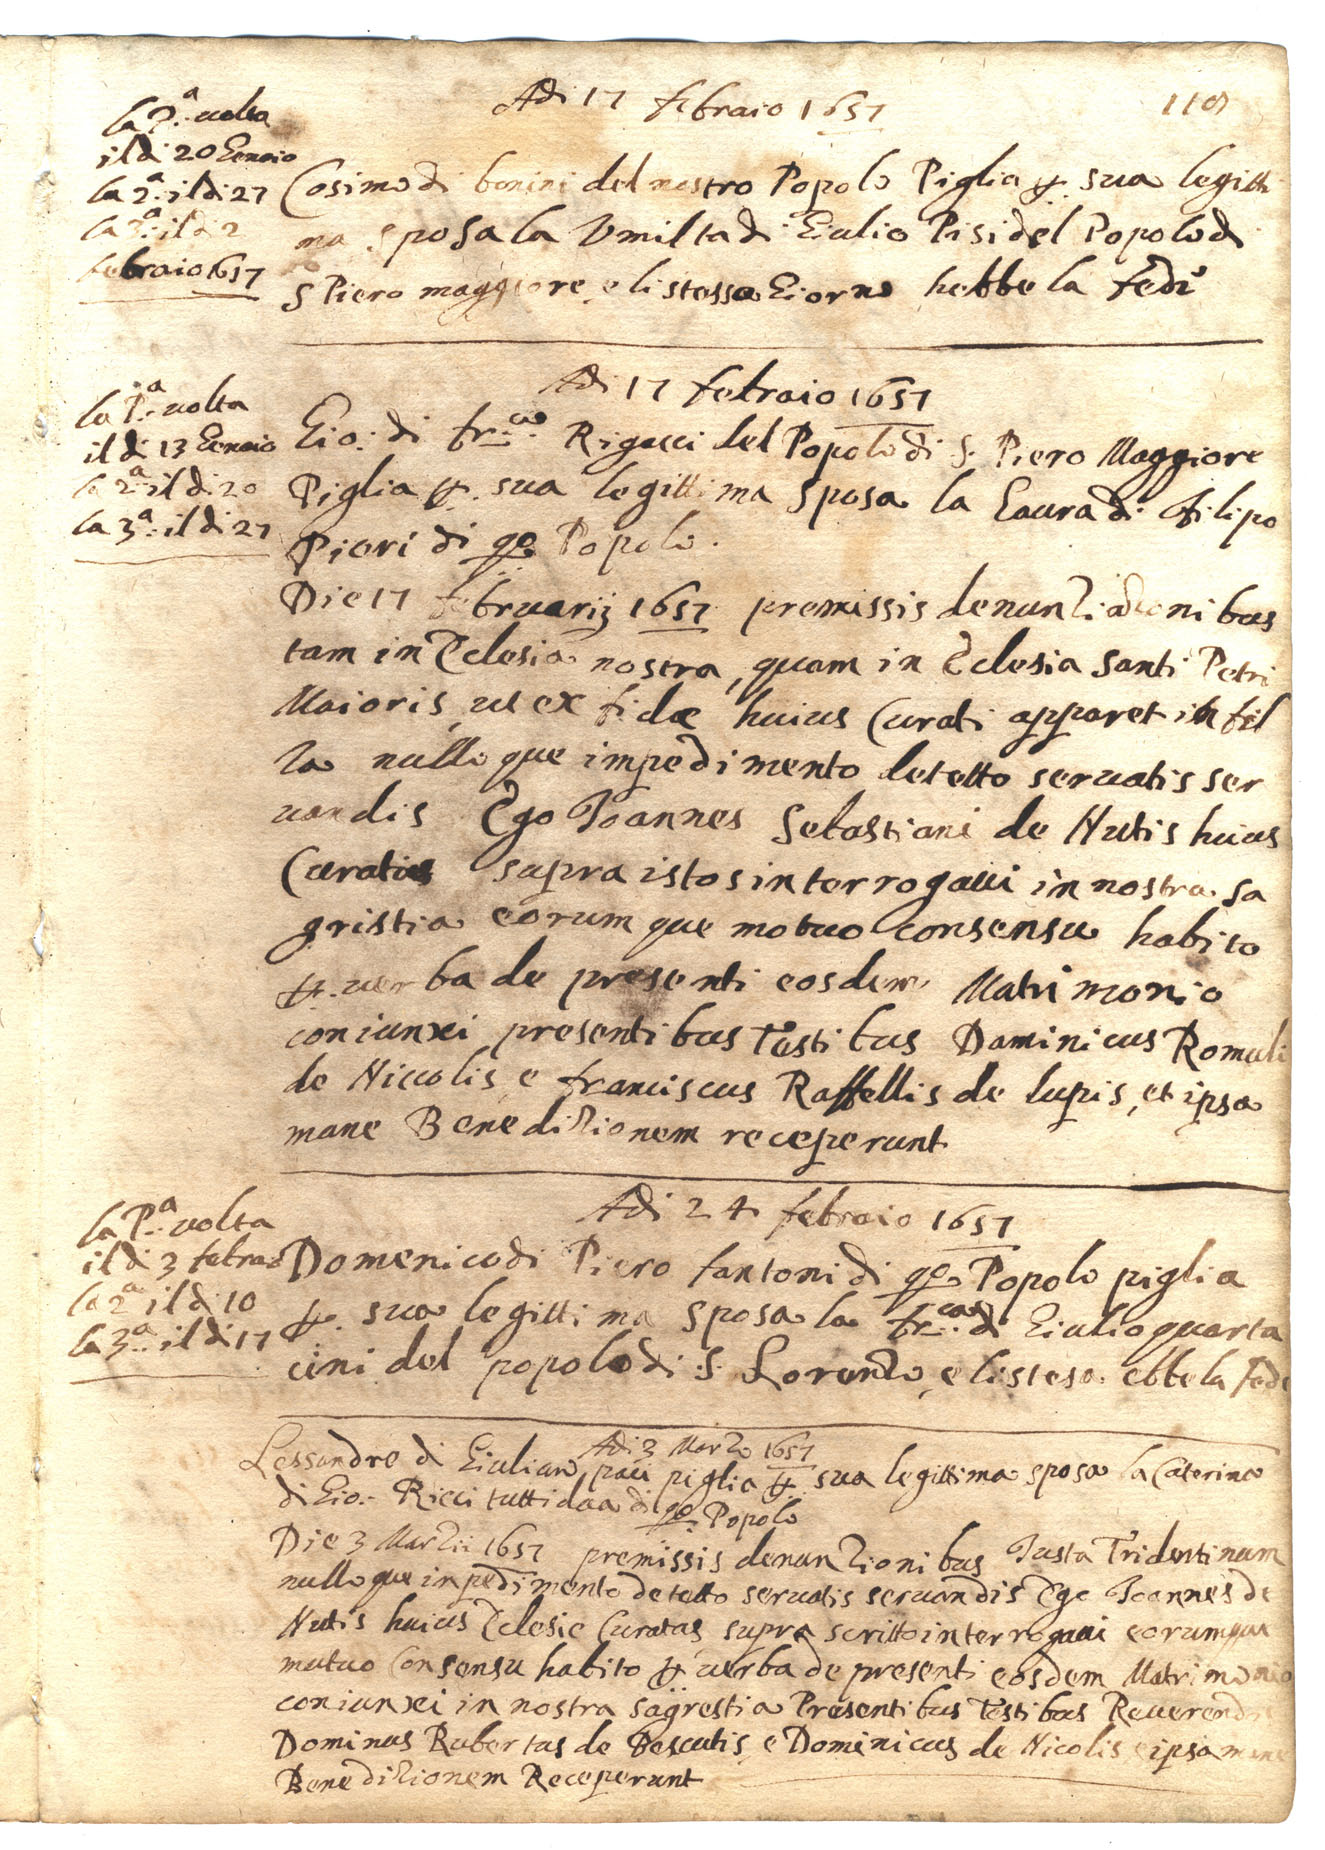 Adi 17 febraio 1657
la P.ª volta
il di 20 Genaio
la 2.ª il di 27
la 3.ª il di 2
febraio 1657
Cosimo di bonini del nostro Popolo Piglia p. sua legitti
ma sposa la Vmilta di Giulio Pisi del Popolo di
S Piero maggiore e listesso Giorno hebbe la fede
Adi 17 febraio 1657
la P.ª volta
il di 13 Genaio
la 2.ª il di 20
la 3.ª il di 27
Gio: di fr:co Rigacci del Popolo di S. Piero Maggiore
Piglia p. sua legittima sposa la Laura di Filipo
Piori di qo Popolo.
Die 17 februarij 1657 premissis denunZiationibus
tam in Eclesia nostra, quam in Eclesia Santi Petri
Maioris, ut ex fidæ huius Curati apparet in fil
Za nulloque impedimento detetto servatis ser
vandis Ego Joannes Sebastiani de Nutis huius
Curatus supra istos interrogavi in nostra sa
gristia eorumque motuo consensu habito
p. verba de presenti eosdem Matrimonio
coniunxi presentibus Testibus Dominicus Romuli
de Niccolis, e franciscus Raffellis de lupis, et ipsa
mane BenediZionem receperunt
Adi 24 febraio 1657
la P.ª volta
il di 3 febraio
la 2.ª il di 10
la 3.ª il di 17
Domenico di Piero fantoni di qo Popolo piglia
p. sua legittima sposa la fr:ca di Giulio quarta
cini del popolo di S. LorenZo, e listesa ebbe la fede
Adi 3 MarZo 1657
Lessandro di Giuliano paci piglia p. sua legittima sposa la Caterina
di Gio: Ricci tutti dua di qo Popolo
Die 3 MarZii 1657 premissis denunZionibus Justa Tridentinum
nulloque inpedimento detetto servatis servandis Ego Joannes de
Nutis huius Eclesie Curatus supra scritto interrogavi eorumque
mutuo Consensu habito p. verba de presenti eosdem Matrimonio
coniunxi in nostra sagrestia Presentibus Testibus Reverendus
Dominus Rubertus de Bescutis, e Dominicus de Nicolis e ipsa mane
BenediZionem Receperunt